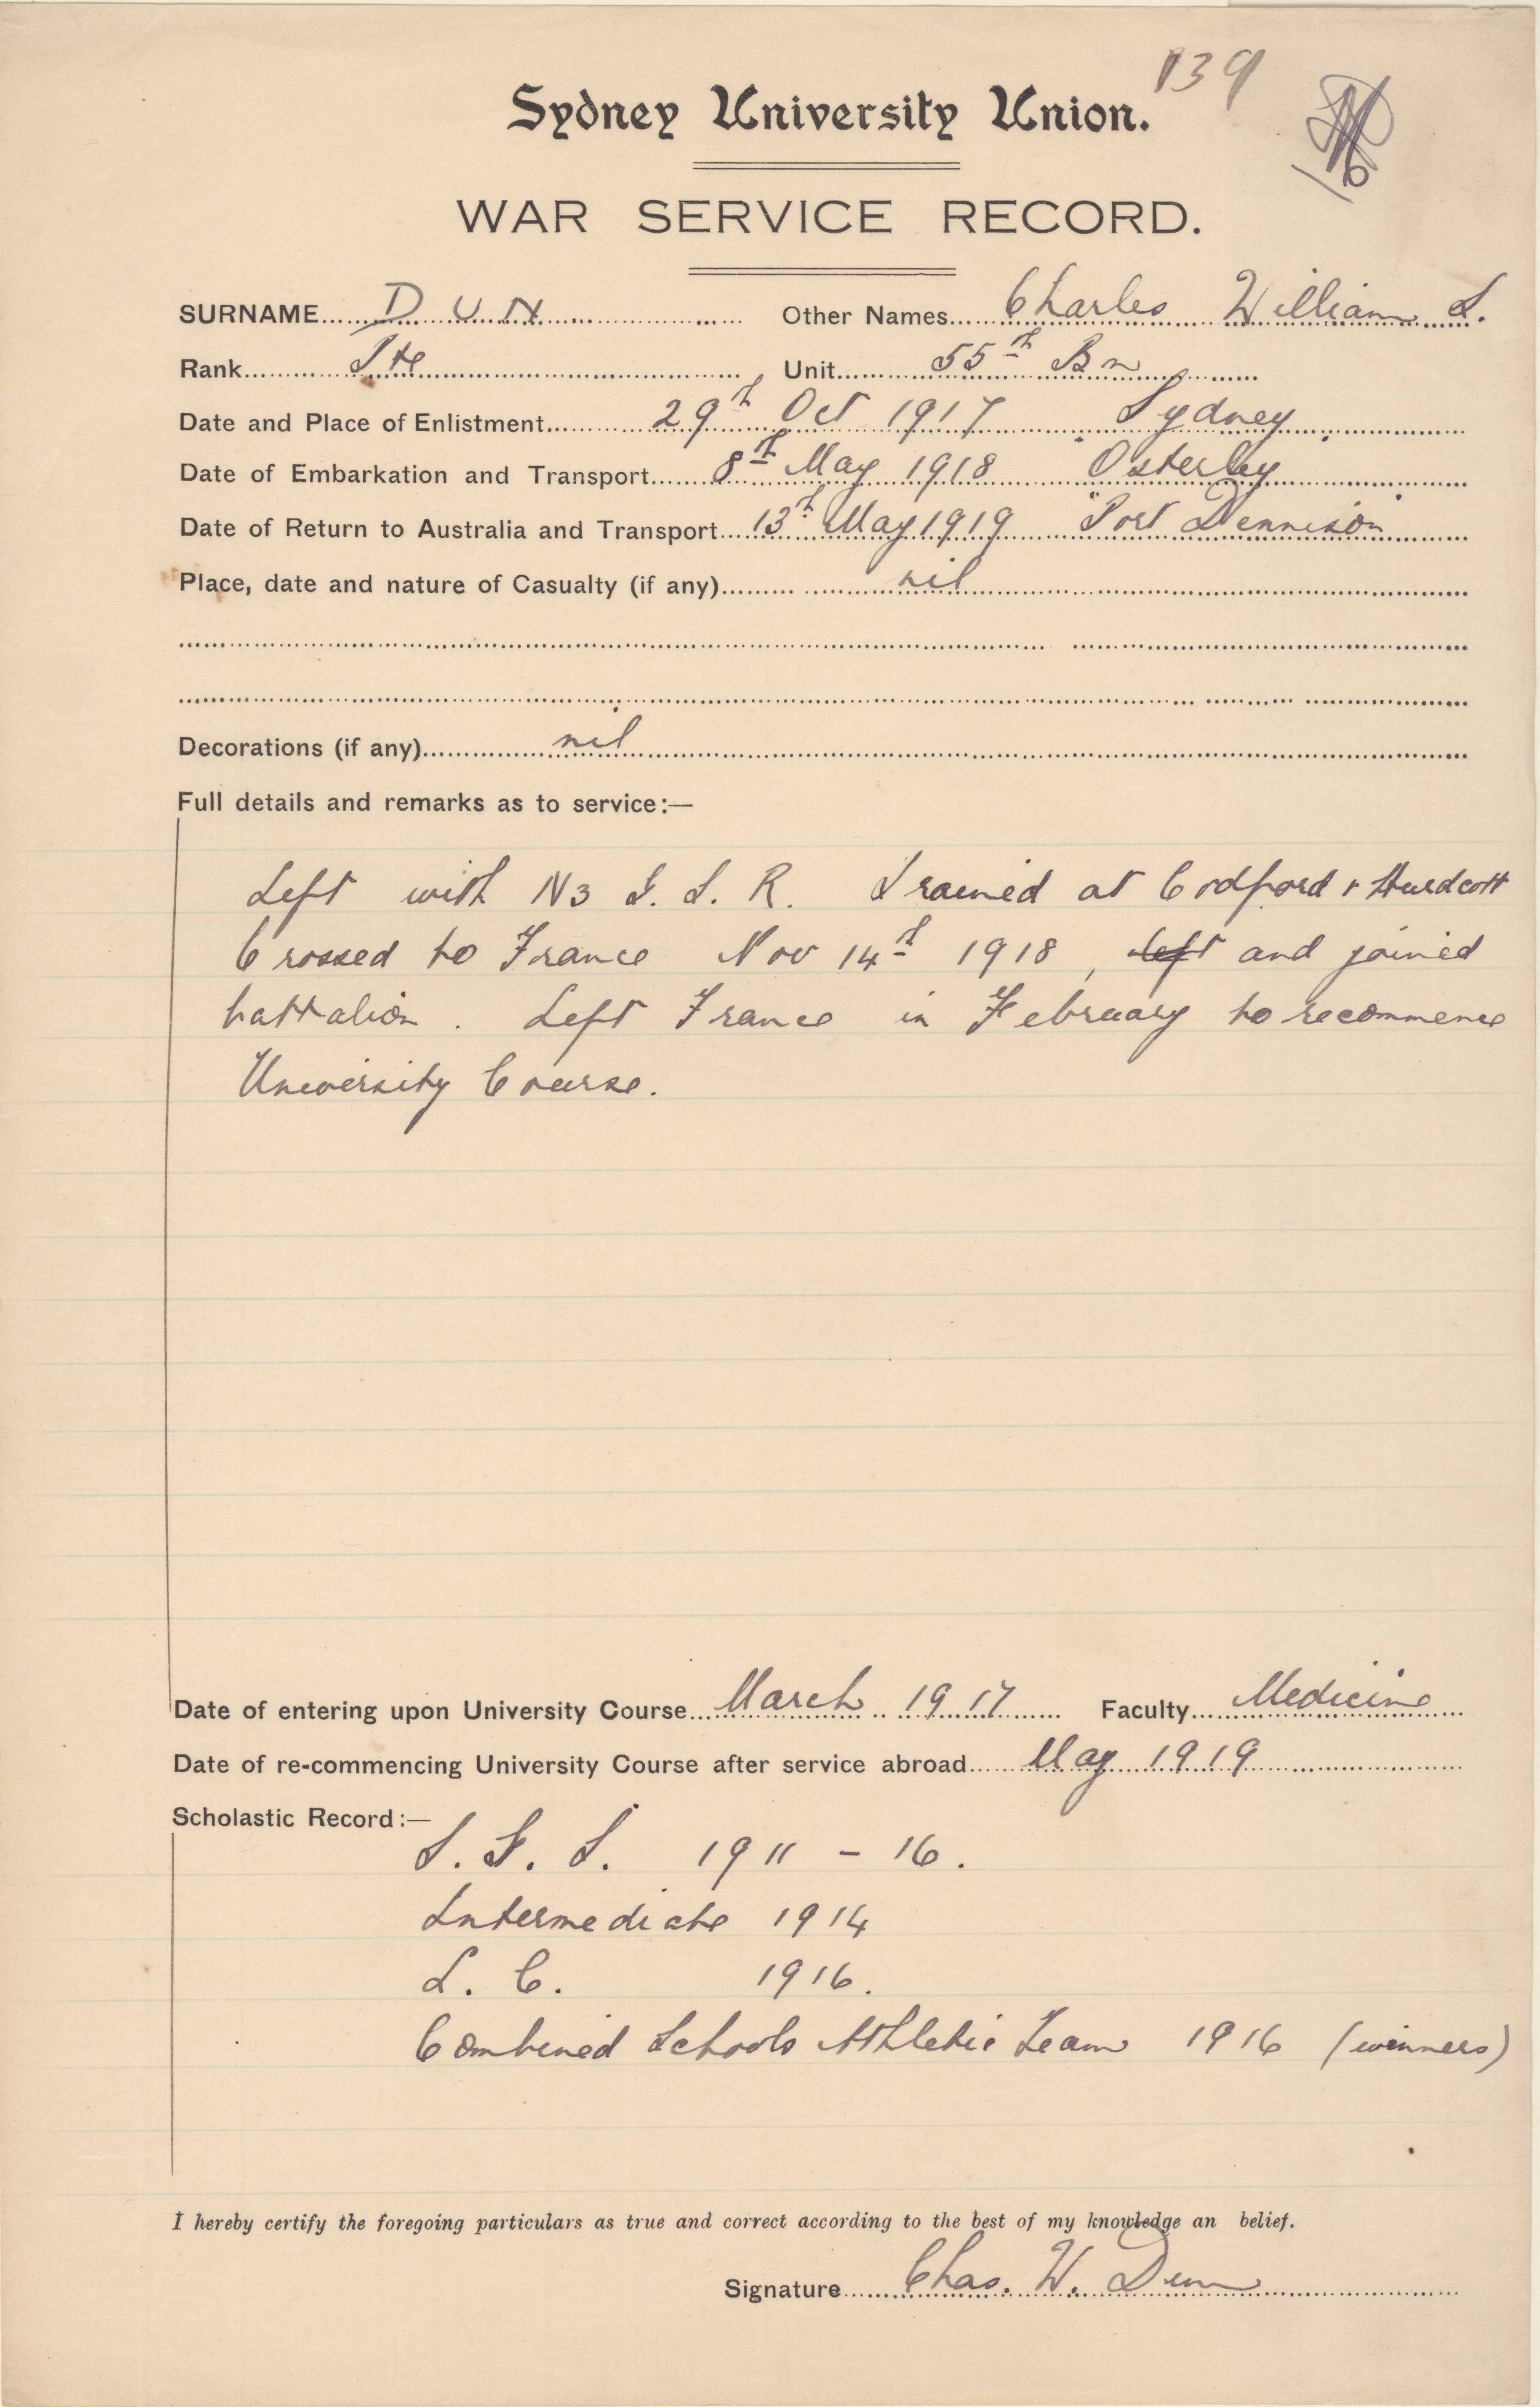 139
Sydney University Union.
WAR SERVICE RECORD.
SURNAME...... D U N ...... Other Names...... Charles William S.
Rank...... Pte ...... Unit...... 55th Bn
Date and Place of Enlistment...... 29th Oct 1917 Sydney
Date of Embarkation and Transport...... 8th May 1918 Osterley
Date of Return to Australia and Transport...... 13th May 1919 "Port Dennison"
Place, date and nature of Casualty (if any)...... nil
Decorations (if any)...... nil
Full details and remarks as to service:—
Left with N3 G. S. R. Trained at Codford & Hurdcott
Crossed to France Nov 14th 1918, left and joined
battalion. Left France in February to recommence
University Course.
Date of entering upon University Course...... March 1917 Faculty...... Medicine
Date of re-commencing University Course after service abroad...... May 1919
Scholastic Record:—
S. G. S. 1911 - 16.
Intermediate 1914
L. C. 1916.
Combined Schools Athletic Team 1916 (winners)
I hereby certify the foregoing particulars as true and correct according to the best of my knowledge an belief.
Signature...... Chas. W. Dun